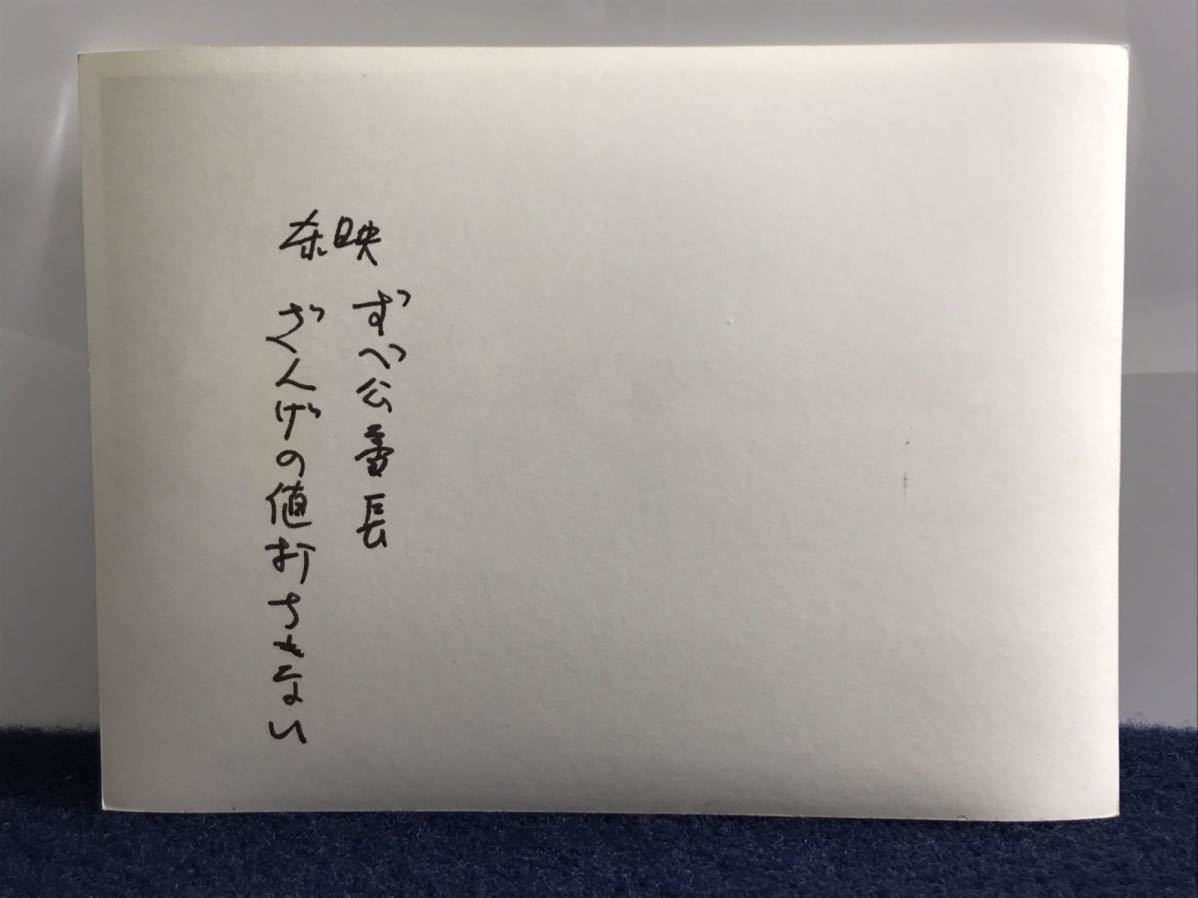 东映
ずべ公番長
ざんげの値打ちもない